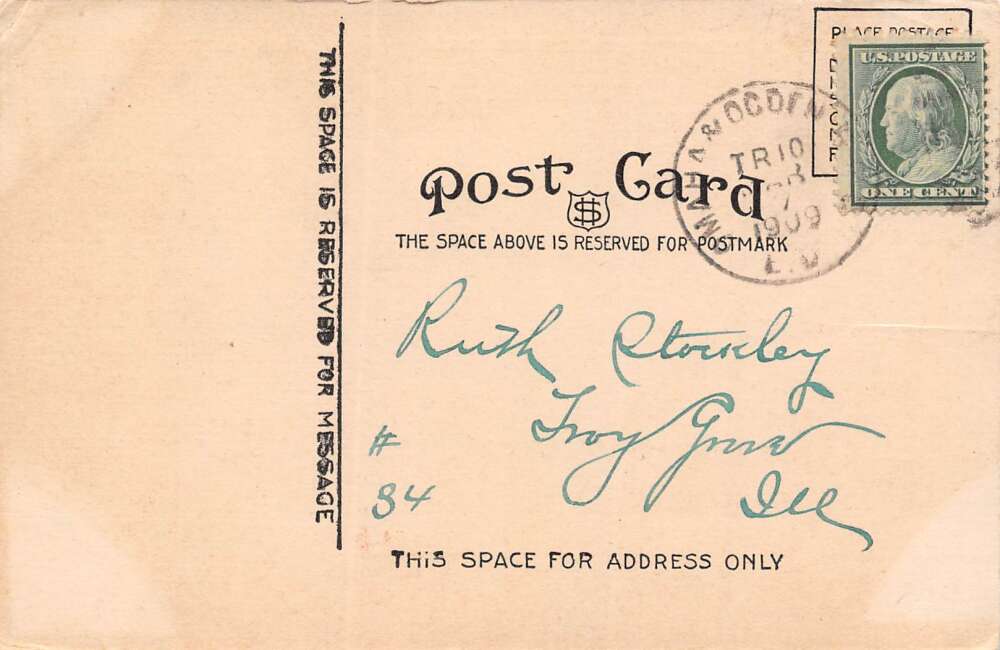 THIS SPACE IS RESERVED FOR MESSAGE
PLACE POSTAGE
U.S. POSTAGE
ONE CENT
OMAHA & OGDEN
TR 10
7
1909
Post Card
THE SPACE ABOVE IS RESERVED FOR POSTMARK
Ruth Stockley
Troy Grove
Ill
#
34
THIS SPACE FOR ADDRESS ONLY